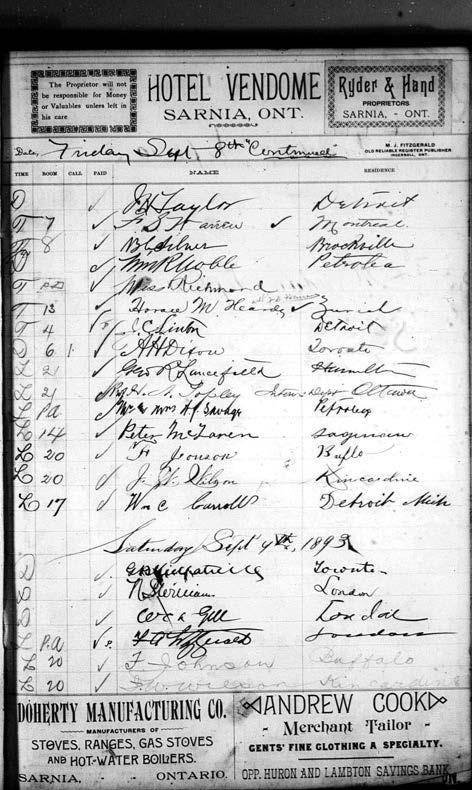 The Proprietor will not be responsible for Money or Valuables unless left in his care
HOTEL VENDOME
SARNIA, ONT.
Ryder & Hand
PROPRIETORS.
SARNIA, - ONT.
Date, Friday Sept 8th "Continued"
M. J. FITZGERALD
OLD RELIABLE REGISTER PUBLISHER
INGERSOLL, ONT.
TIME ROOM CALL PAID NAME RESIDENCE
D ✓ Taylor Detroit
T 7 ✓ F. S. Warren ✓ Montreal
8 ✓ Brockville
✓ Wm R Noble Petrolea
T ✓ Miss Richmond
T 13 ✓ Horace M Heardy ✓
T 4 J. C. Linton Detroit
D 6 ✓ A H Dixon Toronto
L 21 ✓ Geo R Lancefield Hamilton
L 21 H. N. Topley Dept Ottawa
L P.a ✓ Mr & Mrs H J. Savage Petrolea
L 14 ✓ Peter McLaren Saginaw
L 20 ✓ F Jonson Buflo
L 20 ✓ J. W. Wilson Kincardine
L 17 ✓ Wm C Carroll Detroit Mich
Saturday Sept 9th, 1893
D ✓ Kirkpatrick Toronto
D ✓ London
D ✓ Gill London
L P.a ✓ London
L 20 ✓ F. Johnson Buffalo
L 20 ✓ J. W. Wilson Kincardine
DOHERTY MANUFACTURING CO.
MANUFACTURERS OF
STOVES, RANGES, GAS STOVES
AND HOT-WATER BOILERS.
SARNIA, - - ONTARIO.
ANDREW COOK
- Merchant Tailor -
GENTS' FINE CLOTHING A SPECIALTY.
OPP. HURON AND LAMBTON SAVINGS BANK